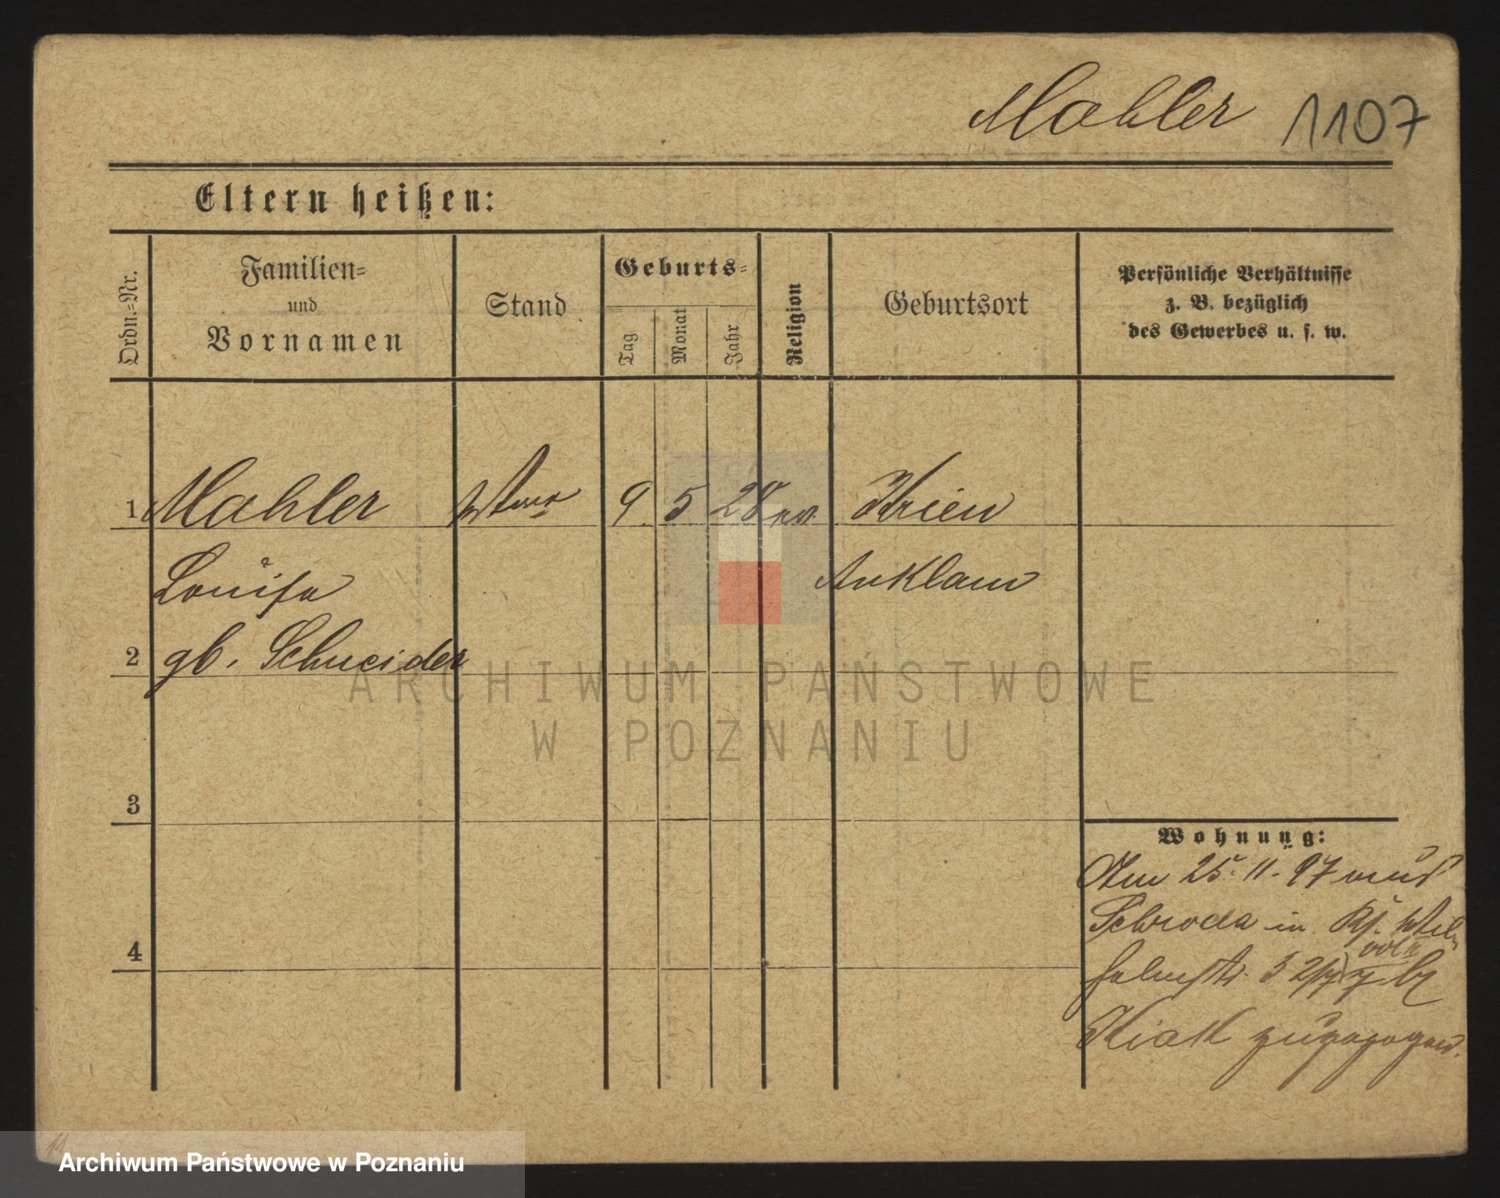 Mahler 1107
Eltern heißen:
Ordn.-Nr.
Familien-
und
Vornamen
Stand
Geburts-
Tag
Monat
Jahr
Religion
Geburtsort
Persönliche Verhältnisse
z. B. bezüglich
des Gewerbes u. s. w.
1 Mahler 9 5 28 ev. Krien
Louise Anklam
2 gb. Schneider
3
4
Wohnung:
Am 25.11.97 aus
Schroda in
zugezogen.
ARCHIWUM PAŃSTWOWE
W POZNANIU
Archiwum Państwowe w Poznaniu